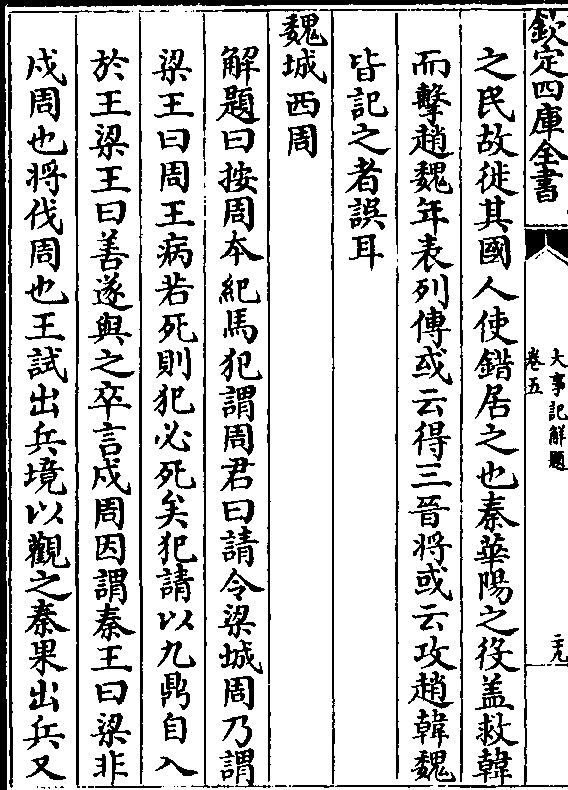 欽定四庫全書
大事記解題
卷五
二九
之民故徙其國人使錯居之也秦華陽之役蓋救韓
而擊趙魏年表列傳或云得三晉將或云攻趙韓魏
皆記之者誤耳
魏城西周
解題曰按周本紀馬犯謂周君曰請令梁城周乃謂
梁王曰周王病若死則犯必死矣犯請以九鼎自入
於王梁王曰善遂與之卒言戍周因謂秦王曰梁非
戍周也將伐周也王試出兵境以觀之秦果出兵又